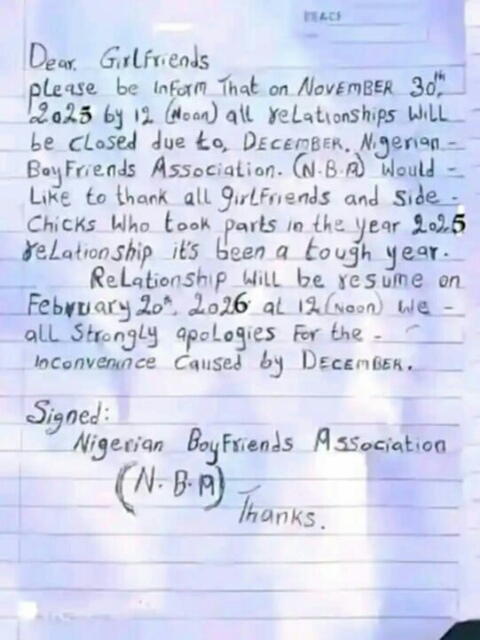 PEACE
Dear. Girlfriends
please be inform That on NOVEMBER 30th
2025 by 12 (Noon) all relationships Will
be closed due to, DECEMBER. Nigerian -
BoyFriends Association. (N.B.A) Would -
Like to thank all girlfriends and side -
Chicks Who took parts in the year 2025
relationship it's been a tough year.
Relationship Will be resume on
February 20th, 2026 at 12 (Noon) We -
all Strongly apologies For the -
inconvenince Caused by DECEMBER.
Signed:
Nigerian BoyFriends Association
(N.B.A)
Thanks.